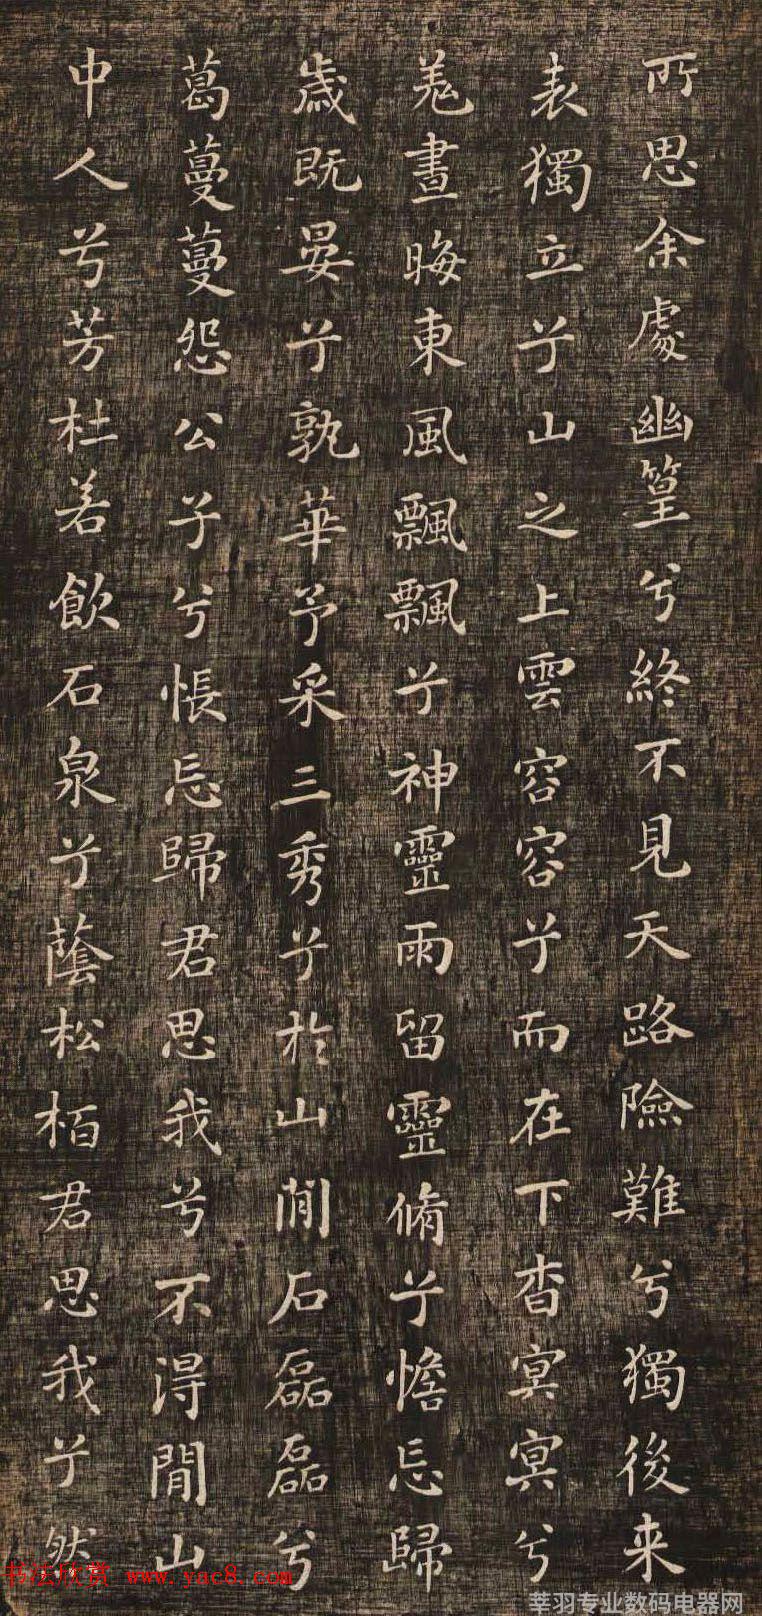 所思余處幽篁兮終不見天路險難兮獨後来
表獨立兮山之上雲容容兮而在下杳冥冥兮
羌晝晦東風飄飄兮神靈雨留靈脩兮憺忘歸
歳既晏兮孰華予采三秀兮於山間石磊磊兮
葛蔓蔓怨公子兮悵忘歸君思我兮不得閒山
中人兮芳杜若飲石泉兮蔭松栢君思我兮然
书法欣赏 www.yac8.com
莘羽专业数码电器网